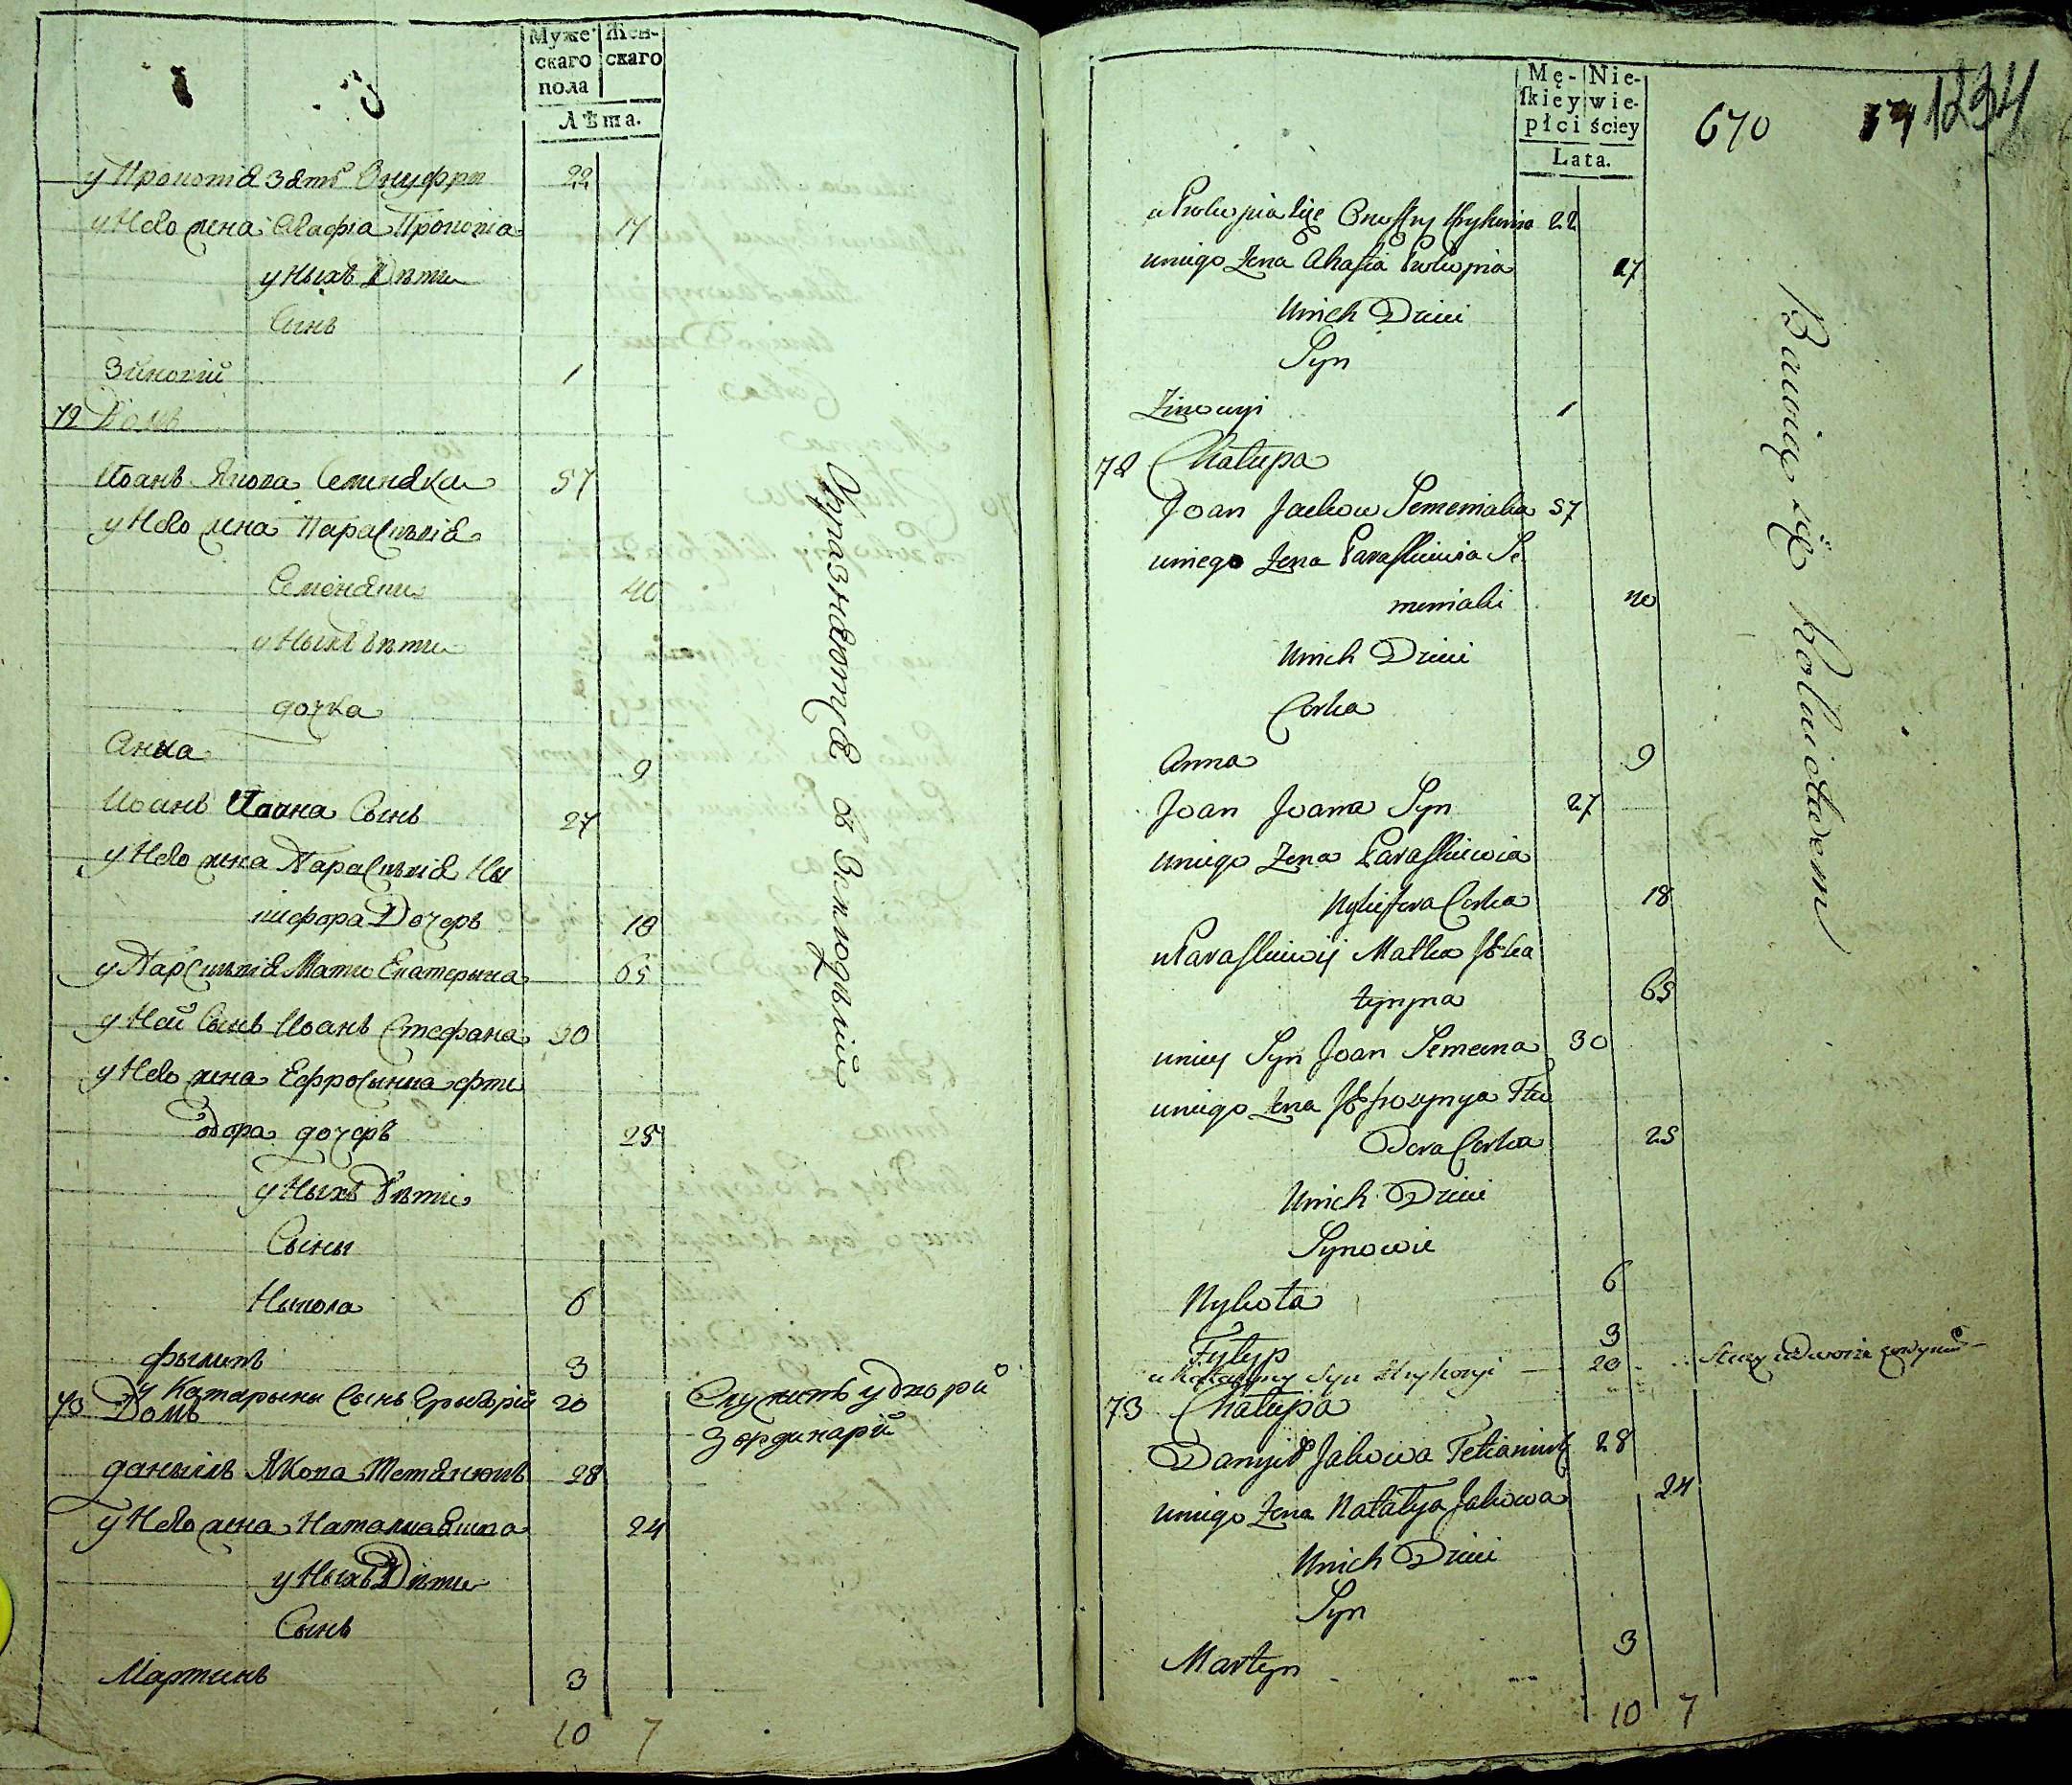 Муже-
скаго
пола
Жен-
скаго
Лѣта.
у Прокопія зять Онуфри 22
у Него жена Агафія Прокопіа 17
у Ныхъ Дѣти
Сынъ
Зиновій 1
72 Домъ
Иоанъ Якова Семеняка 57
у Него жена Параскѣвія
Семеняки 40
у Ныхъ дѣти
дочка
Анна 9
Иоанъ Иоана Сынъ 27
у Него жена Параскѣвія Ны
кифора Дочеръ 18
у Параскѣвія Мати Екатерына 65
у Ней Сынъ Иоанъ Стефана 30
у Него жена Ефросыниа Фте
одора дочеръ 25
у Ныхъ дѣти
Сыны
Никола 6
Фылипъ 3
у Катарыны Сынъ Грыгорій 20
73 Домъ
Данылъ Якова Тетянюкъ 28
у Него жена Наталиа Якова 24
у Ныхъ Дѣти
Сынъ
Мартинъ 3
10 7
Упражняются в Земледѣлій
Служитъ у дворѣ
з ординарій
Mę-
skiey
płci
Nie-
wie-
ściey
Lata.
670
1234
u Prokopia Onufry 22
uniego Żena Ahafia Prokopia 17
Unich Dzieci
Syn
Zinowyi 1
72 Chałupa
Joan Jackow Semeniaka 57
uniego Żena Paraskiewia Se
meniaki 40
Unich Dzieci
Corka
Anna 9
Joan Joana Syn 27
uniego Żena Paraskiewia
Nykifora Corka 18
u Paraskiewij Matka Ka
tyryna 65
uniey Syn Joan Semena 30
uniego Żena Jefrozynya Fte
Dora Corka 25
Unich Dzieci
Synowie
Nykoła 6
Fylyp 3
u Kataryny Syn Hryhoryi 20
73 Chałupa
Danyło Jakowa Tetianiuk 28
uniego Żena Natalya Jakowa 24
Unich Dzieci
Syn
Martyn 3
10 7
Bawią się Rolnictwem